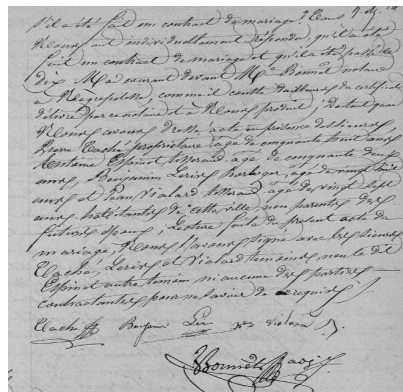 s'il a été fait un contrat de mariage? Tous
Nous ont individuellement répondu qu'il a été
fait un contrat de mariage et qu'il a été passé le
dix Mai courant devant Me Bonnet notaire
à Nègrepelisse, comme il conste d'ailleurs du certificat
délivré par ce notaire et à Nous produit; de tout quoi
Nous avons dressé acte en présence des sieurs
Pierre Caché propriétaire âgé de cinquante huit ans
Antoine Espinot tisserand, âgé de cinquante deux
ans, Benjamin Leris, âgé de vingt huit
ans et Vialard tisserand, âgé de vingt sept
ans habitants de cette ville, non parents des
futurs époux; Lecture faite du présent acte de
mariage, Nous l'avons signé avec les sieurs
Caché, Leris et Vialard témoins, non le dit
Espinot autre témoin ni aucune des parties
contractantes pour ne savoir de ce requis.
Caché Benjamin Leris Vialard